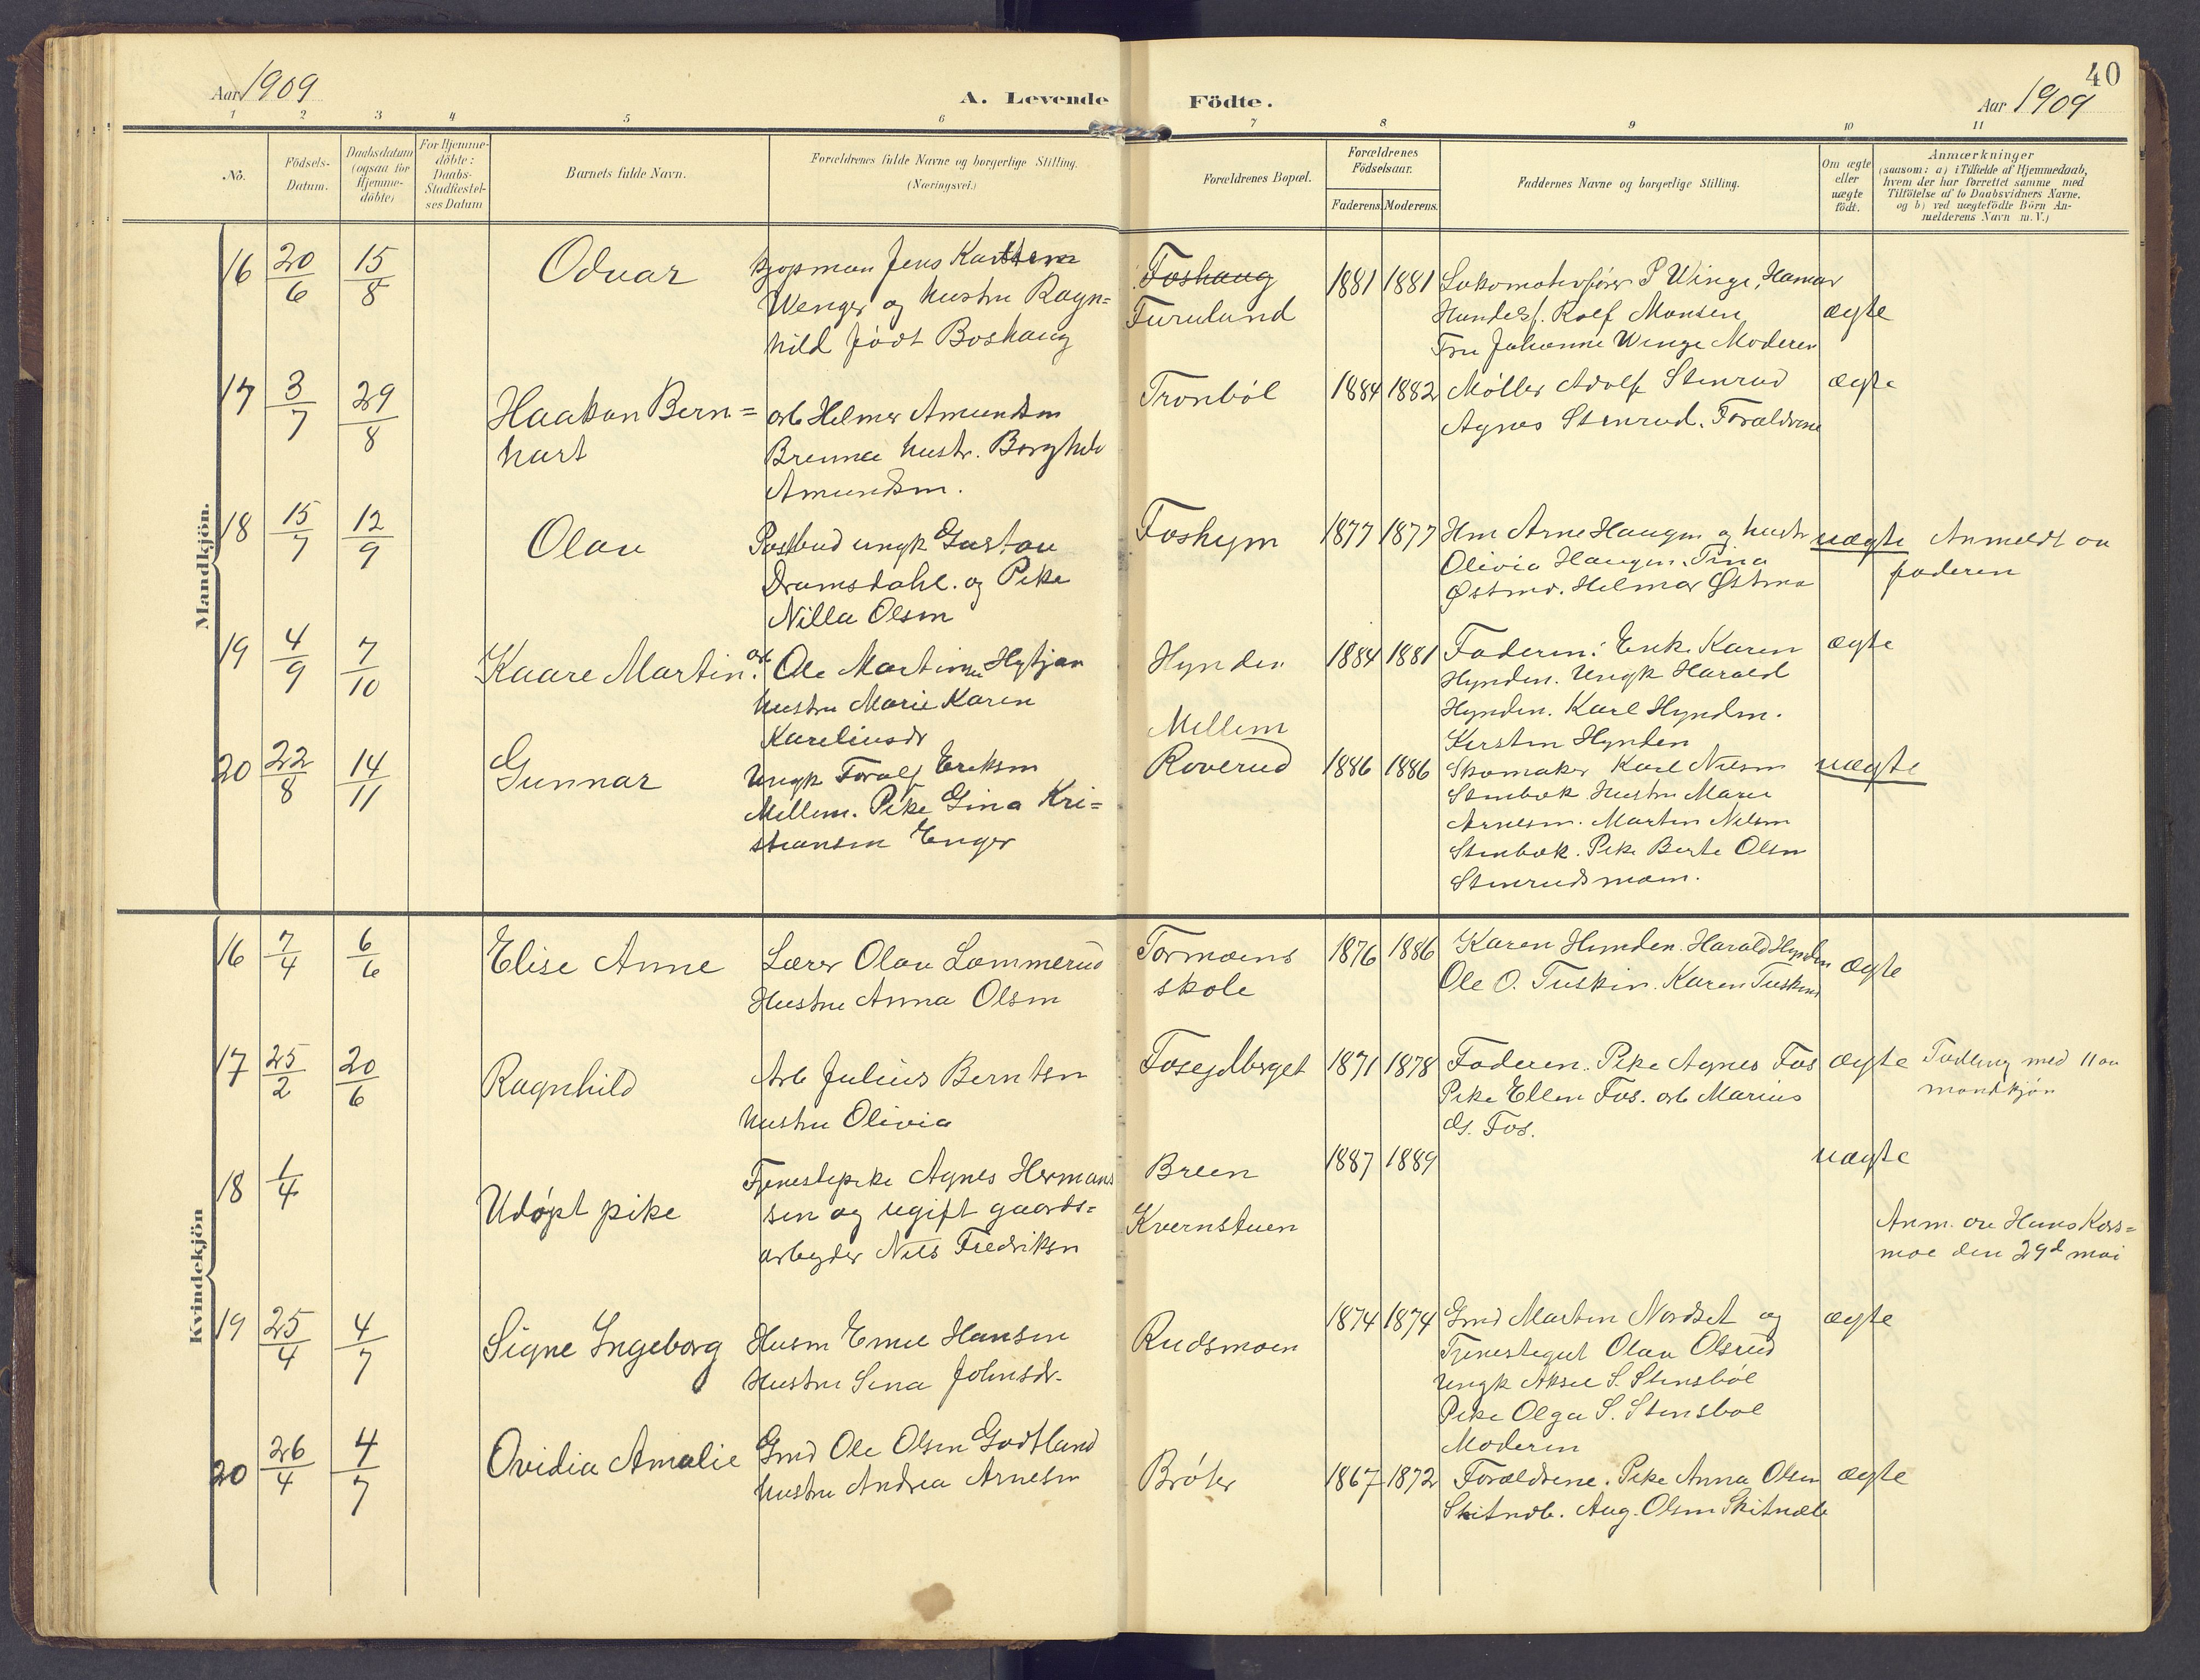 40
Aar 1909
A. Levende Födte.
Aar 1909
1 2 3 4 5 6 7 8 9 10 11
No.
Födsels-
Datum.
Daabsdatum
(ogsaa for
Hjemme-
döbte)
For Hjemme-
döbte:
Daabs-
Stadfæstel-
ses Datum
Barnets fulde Navn.
Forældrenes fulde Navne og borgerlige Stilling.
(Næringsvei.)
Forældrenes Bopæl.
Forældrenes
Födselsaar.
Faderens. Moderens.
Faddernes Navne og borgerlige Stilling.
Om ægte
eller
uægte
födt.
Anmærkninger
(saasom: a) i Tilfælde af Hjemmedaab,
hvem der har forrettet samme med
Tilföielse af to Daabsvidners Navne.
og b) ved uægtefödte Börn An-
melderens Navn m.V.)
Mandkjön.
16 20/6 15/8
Odvar
Kjøpman Jens Karsten
Wenger og hustru Ragn=
hild født Boshaug
Foshaug
Furulund
1881 1881
Lokomotivfører P Winge, Hamar
Handelsf. Rolf Monsen
Fru Johanne Winge Moderen
ægte
17 3/7 29/8
Haakon Bern=
hart
arb Helmer Amundsen
Brenna hustr. Borghild
Amundsen.
Tronbøl
1884 1882
Møller Adolf Stenrud
Agnes Stenrud. Forældrene
ægte
18 15/7 12/9
Olav
Postbud ungk Gustav
Dramsdahl. og Pike
Nilla Olsen
Foshym
1877 1877
Hm Arne Haugen og hustr
Olivia Haugen. Tina
Østmo. Helmar Østmo
uægte
Anmeldt av
faderen
19 4/9 7/10
Kaare Martin.
arb Ole Martinsen Hytjan
hustru Marie Karen
Kareliusdr
Hynden
1884 1881
Faderen: Enke Karen
Hynden. Ungk Harald
Hynden. Karl Hynden.
Kersten Hynden
ægte
20 22/8 14/11
Gunnar
Ungk Toralf Eriksen
Millem. Pike Gina Kri=
stiansen Enger
Millem
Roverud
1886 1886
Skomaker Karl Nilsen
Stenbæk Hustru Marie
Arnesen. Martin Nilsen
Stenbæk. Pike Berte Olsen
Stenrudsmoen.
uægte
Kvindekjön
16 7/4 6/6
Elise Anne
Lærer Olav Lammerud
Hustru Anna Olsen
Tormoens
skole
1876 1886
Karen Hynden. Harald Hynden
Ole O. Tuskin. Karen Tuskin
ægte
17 25/2 20/6
Ragnhild
Arb Julius Berntsen
hustru Olivia
Foseidberget
1871 1878
Faderen. Pike Agnes Fos
Pike Ellen Fos. arb Marius
ds. Fos.
ægte
Tvilling med 11 av
mandkjøn
18 1/4
Udøpt pike
Tjenestepike Agnes Hermans
sen og ugift gaards=
arbeyder Nils Fredriksen
Breen
Kvernstuen
1887 1889
uægte
Anm. av Hans Kors=
moe den 29d mai
19 25/4 4/7
Signe Ingeborg
Husm Emil Hansen
Hustru Lina Johnsdr.
Rudsmoen
1874 1874
Gmd Martin Nordset og
Tjenestegut Olav Olsrud
Ungk Aksel S. Stensbøl
Pike Olga S. Stensbøl
Moderen
ægte
20 26/4 4/7
Ovidia Amalie
Gmd Ole Olsen Godtland
hustru Andrea Arnesen
Brøter
1867 1872
Forældrene. Pike Anna Olsen
Skitndb. Aug. Olsen Skitndb
ægte